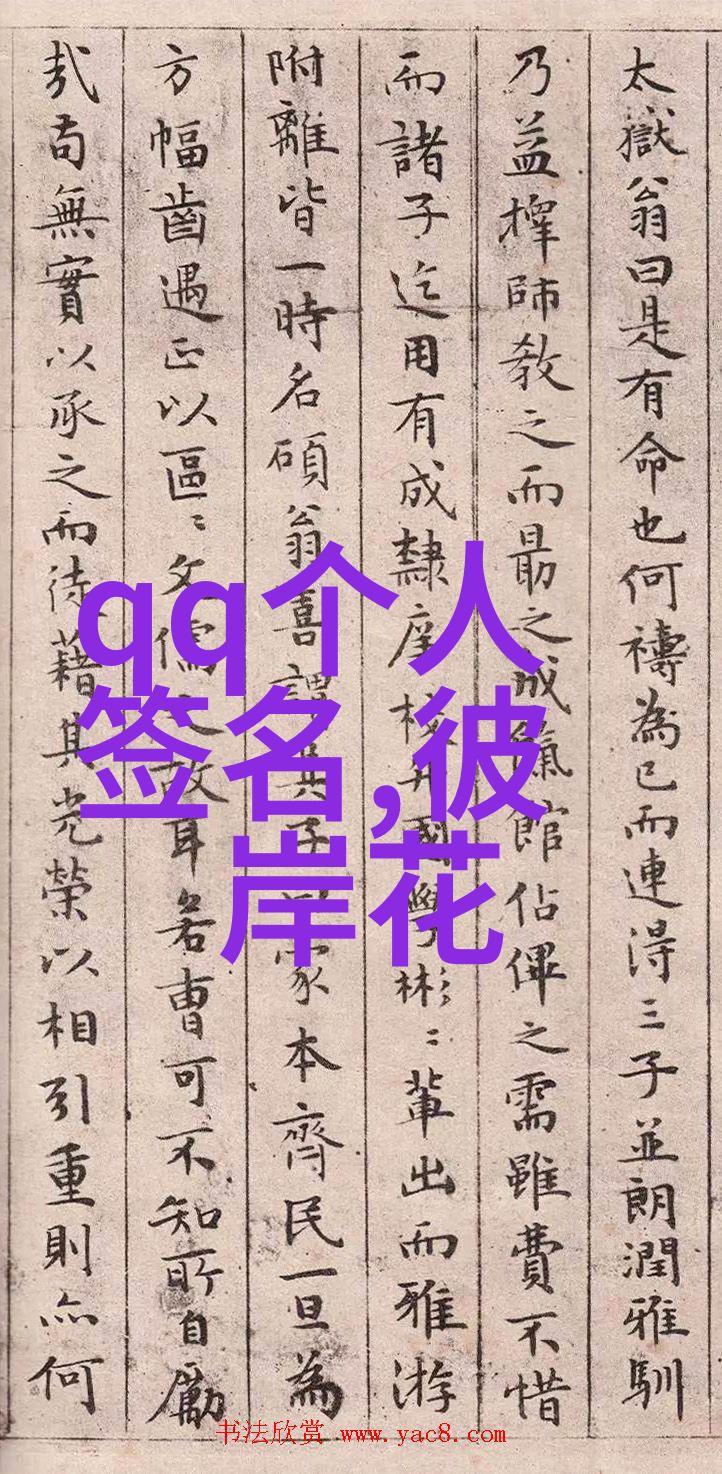 太嶽翁曰是有命也何禱為已而連得三子並朗潤雅馴
乃益擇師教之而最之成餼館佔俾之需雖費不惜
而諸子迄用有成隸庠校升國學彬〻輩出而雅游
附離皆一時名碩翁喜謂其子以家本齊民一旦為
方幅齒遇正以區〻文儒之故耳若曹可不知所自勵
哉苟無實以承之而徒藉其光榮以相引重則亦何
qq个人
签名,彼
岸花
书法欣赏 www.yac8.com